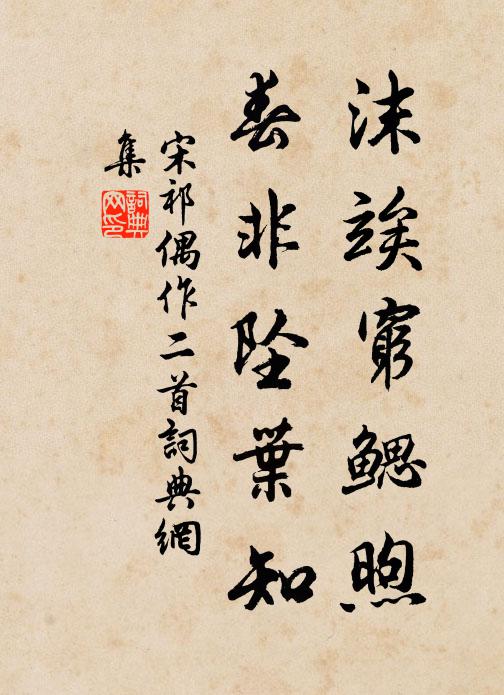 沫竢窮鰓煦
春非坠葉知
宋祁偶作二首詞典網
集
詞典网印